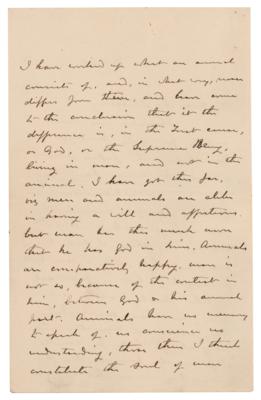 I have worked up what an animal
consists of, and, in what way, man
differs from them, and have come
to the conclusion that it the
difference is, in the First cause,
or God, or the Supreme Being,
living in man, and not in the
animal. I have got thus far,
viz men and animals are alike
in having a will and affections.
but man has this much more
that he has God in him. Animals
are comparatively happy. man is
not so, because of the contest in
him, between God & his animal
part. Animals have no memory
to speak of. no conscience no
understanding, those then I think
constitute the soul of man